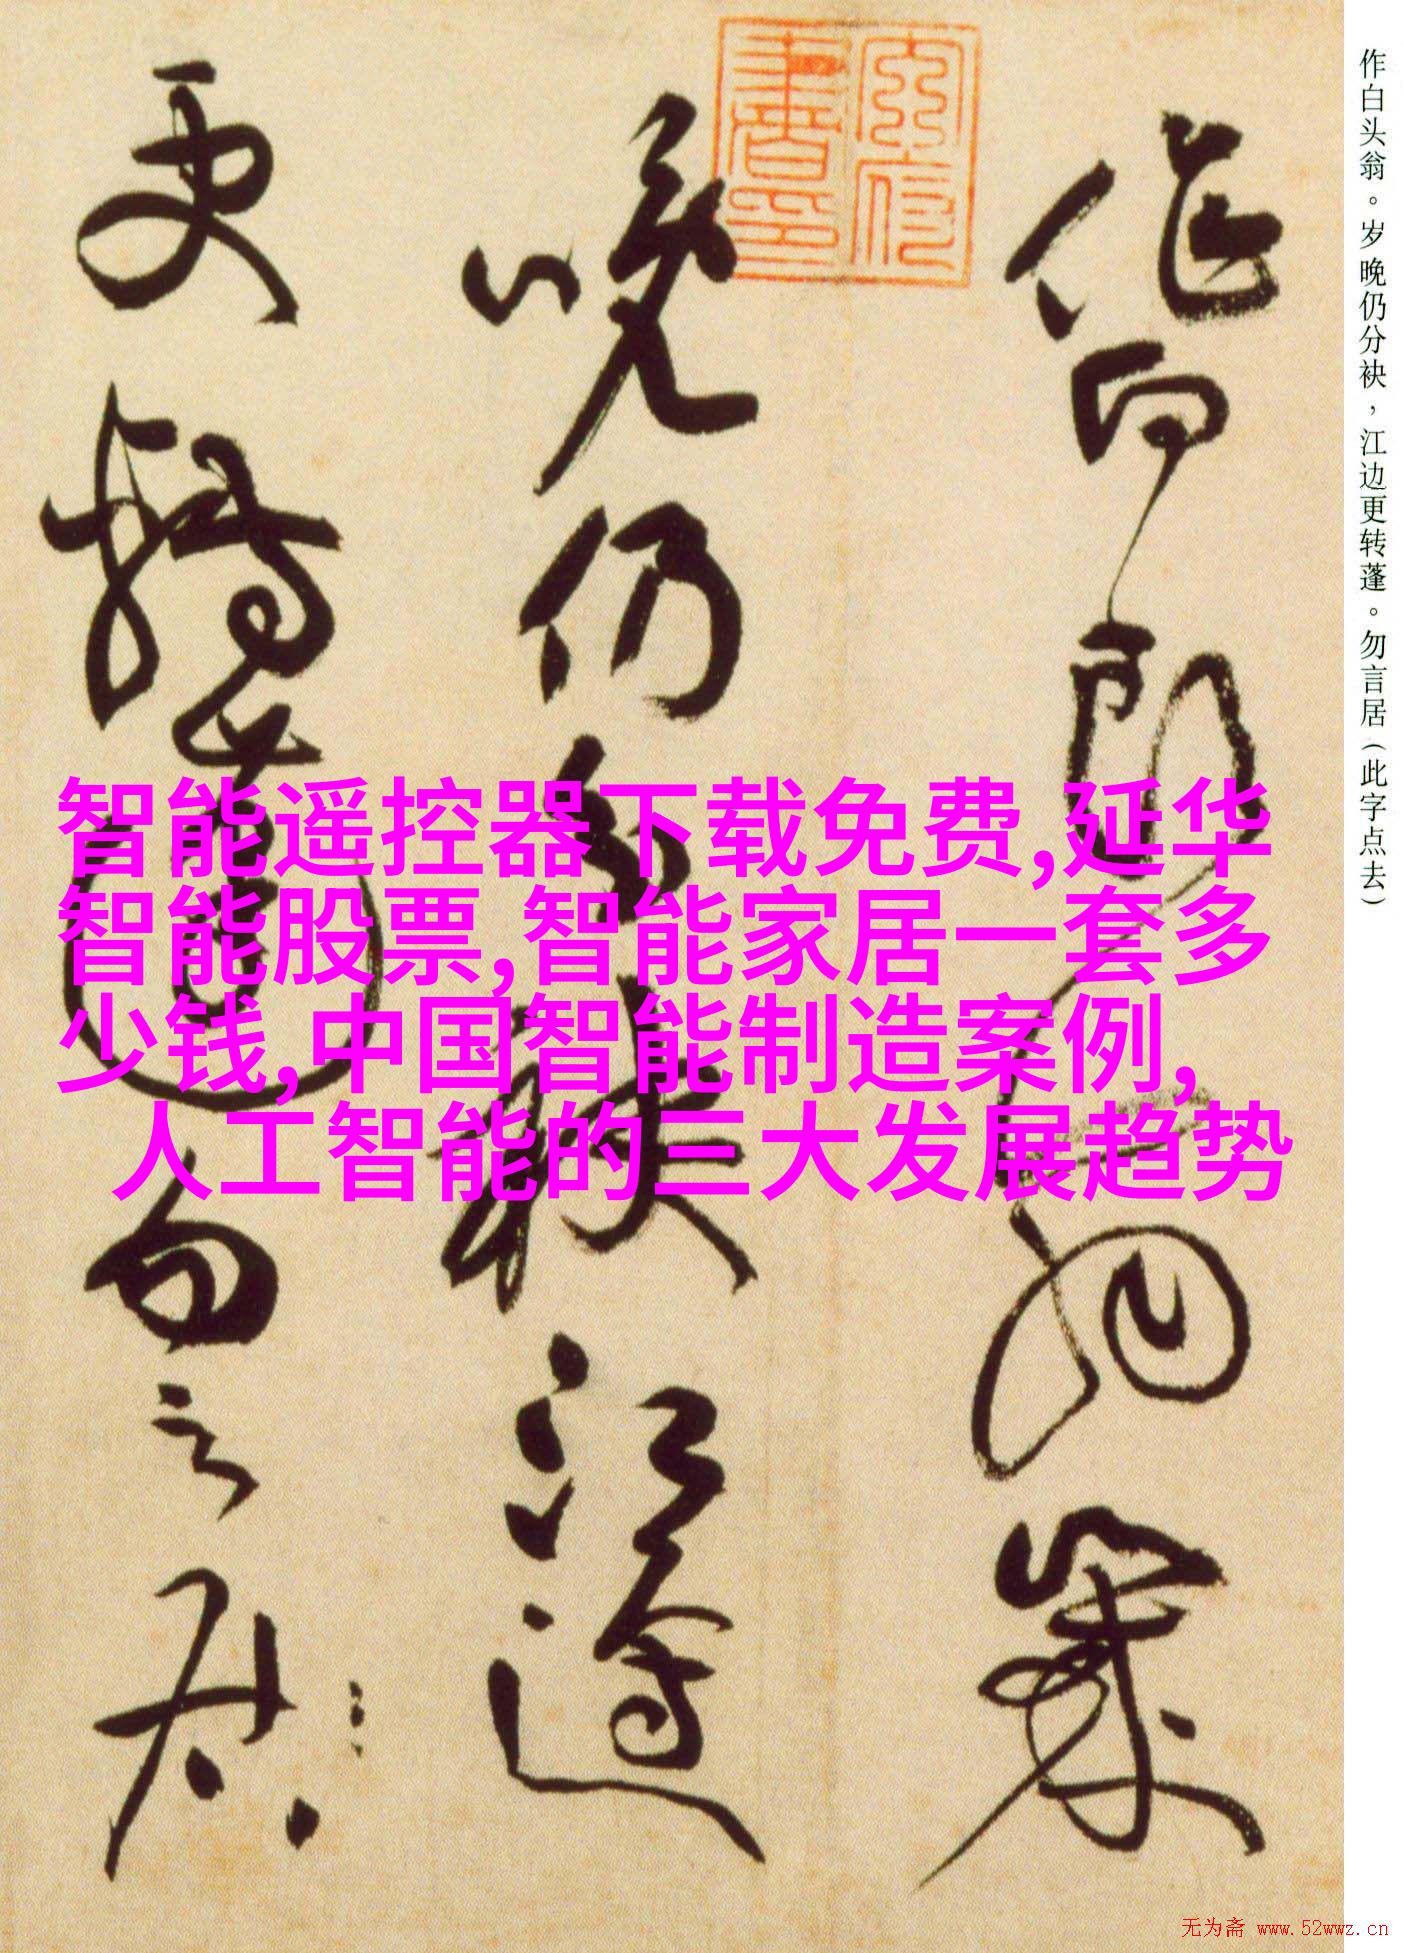 作白头翁。岁晚仍分袂，江边更转蓬。勿言居（此字点去）
作白頭翁歲
晚仍分袂江邊
更轉蓬勿言居
智能遥控器下载免费,延华
智能股票,智能家居一套多
少钱,中国智能制造案例,
人工智能的三大发展趋势
无为斋 www.52wwz.cn